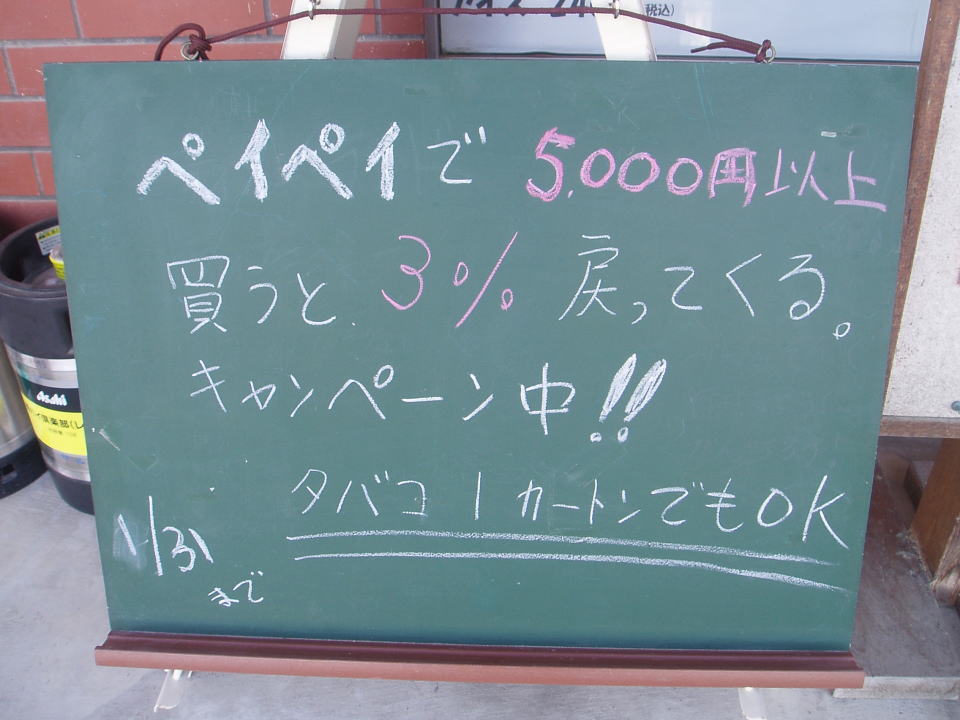 (税込)
ペイペイで 5,000円以上
買うと、3% 戻ってくる。
キャンペーン中!!
タバコ1カートンでもOK
まで
Asahi